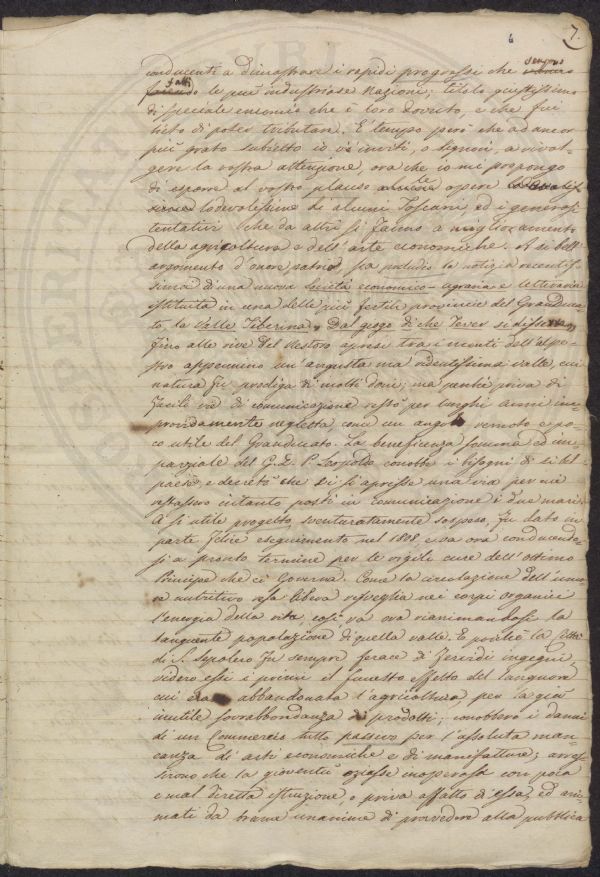 6 7.
conducenti a dimostrare i rapidi progressi che sempre
fatti le più industriose Nazioni; titolo giustissimo
di speciale encomio che è loro dovuto, e che fui
lieto di poter tributare. È tempo però che ad ancor
più grato subietto io v'inviti, o signori, a rivol-
gere la vostra attenzione, ora che io mi propongo
di esporre al vostro plauso le opere
lodevolissime di alcuni Toscani ed i generosi
tentativi che da altri si fanno a miglioramento
della agricoltura e dell'arte economiche. A sì bell'
argomento d'onore patrio fia preludio la notizia recentis-
sima di una nuova società economico-agraria e letteraria
istituita in una delle più fertili provincie del Granduca-
to, la Valle Tiberina. Dal giogo di che Tever si disserra
fino alle rive del Vestovo apresi tra i monti dell'alpe-
stro appennino un'angusta ma ridentissima valle, cui
natura fu prodiga di molti doni; ma perchè priva di
facili vie di comunicazione restò per lunghi anni im-
provvidamente negletta come un angolo remoto e po-
co utile del Granducato. La beneficenza somma ed im-
parziale del G. D. P. Leopoldo conobbe i bisogni di sì bel
paese e decretò che vi si aprisse una via per cui
restassero intanto posti in comunicazione i due mari.
A sì utile progetto, sventuratamente sospeso, fu dato in
parte felice eseguimento nel 1808, e va ora conducendo-
si a pronto termine per le vigili cure dell'ottimo
Principe che ci Governa. Come la circolazione dell'umo-
re nutritivo resa libera risveglia nei corpi organici
l'energia della vita, così va ora rianimandosi la
languente popolazione di quella valle. E poichè la Città
di S. Sepolcro fu sempre ferace di fervidi ingegni,
videro essi i primi il funesto effetto del languore
cui era abbandonata l'agricoltura, per la già
inutile sovrabbondanza di prodotti; conobbero i danni
di un Commercio tutto passivo per l'assoluta man-
canza di arti economiche e di manifatture; arros-
sirono che la gioventù oziasse inoperosa con poca
e mal diretta istruzione, o priva affatto di essa; ed ani-
mati da brama unanime di provvedere alla pubblica